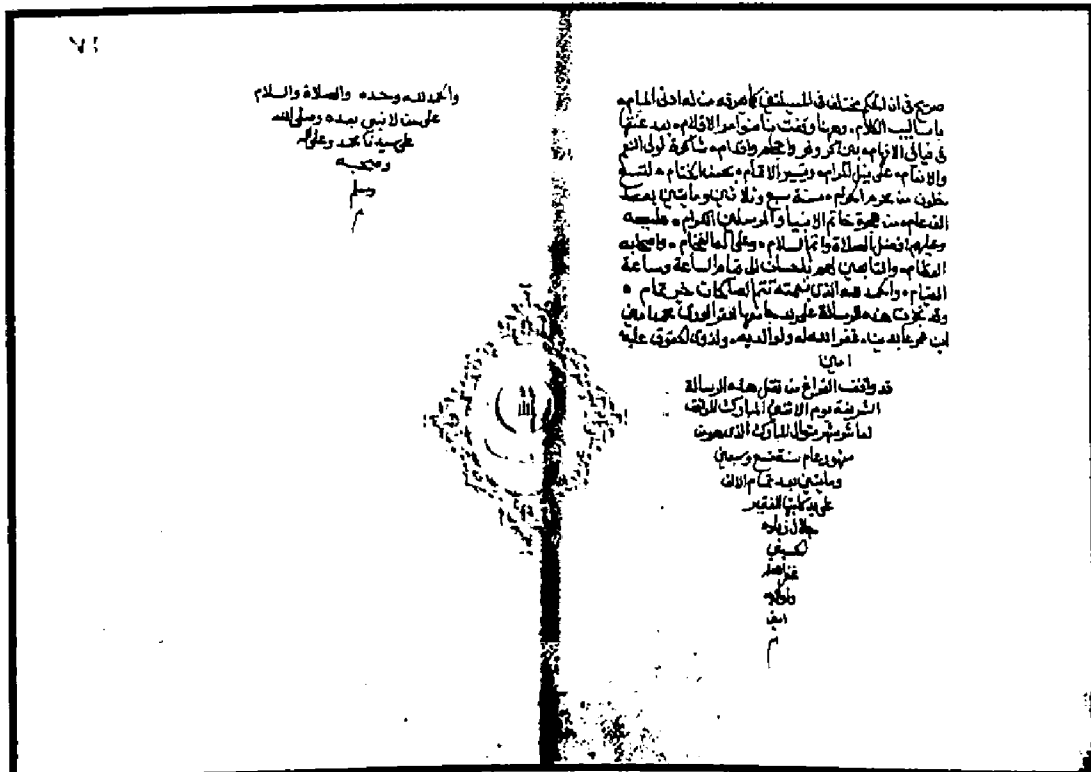 صريح في ان الحكم مختلف في المسئلتين كما يعرفه من له ادنى المام
باساليب الكلام وهنا وقفت بنا ضوامر الاقلام بعد
في فيافي الافهام بين كر وفر واحجام واقدام شاكرة لولي النعم
والانعام على نيل المرام وتيسير الاتمام بحسن الختام لتسع
خلون من محرم الحرام سنة سبع وثلاثين ومايتين بعد
الف عام من هجرة خاتم الانبيا والمرسلين الكرام عليه
وعليهم افضل الصلاة واتم السلام وعلى اله الفخام واصحابه
العظام والتابعين لهم باحسان الى قيام الساعة وساعة
القيام والحمد لله الذي بنعمته تتم الصالحات خير تمام
وقد نجزت هذه الرسالة على يد جامعها افقر الورى محمد امين
ابن عمر عابدين غفر الله له ولوالديه ولذوي الحقوق عليه
امين
قد وافق الفراغ من نقل هذه الرسالة
الشريفة يوم الاثنين المبارك الموافق
لعاشر شهر شوال المبارك الذي هو من
شهور عام سنة تسع وسبعين
ومايتين بعد تمام الالف
على يد كاتبها الفقير
الحسيني
غفر الله
امين
م
٧١
والحمد لله وحده والصلاة والسلام
على من لا نبي بعده وصلى الله
على سيدنا محمد وعلى اله
وصحبه
وسلم
م